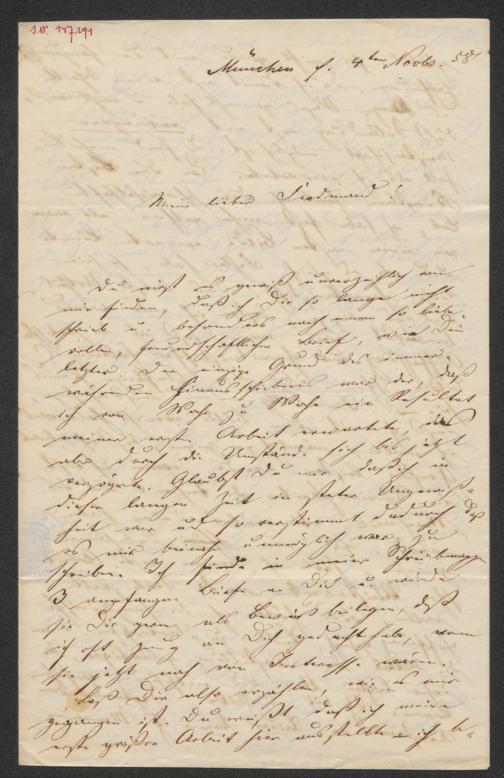 I.N. 157.291
München d. 4ten Novbr. 58
Mein lieber Ferdinand!
Du wirst es gewiß unverzeihlich von
mir finden, daß ich Dir so lange nicht
schrieb u. besonders nach einem so liebe-
vollen, freundschaftlichen Brief, wie Dein
letzter. Der einzige Grund des immer-
währenden Hinausschiebens war der, daß
ich von Woche zu Woche ein Resultat
meiner ersten Arbeit erwartete, das
aber durch die Umstände sich bis jetzt
verzögerte. Glaubst Du mir, daß ich in
dieser langen Zeit in steter Ungewiß-
heit war und so verstimmt dadurch, daß
es mir beinahe unmöglich war, zu
schreiben. Ich finde in meiner Schreibmappe
3 angefangene Briefe an Dich u. würde
sie Dir gern als Beweis beilegen, daß
ich oft genug an Dich gedacht habe, wenn
sie jetzt noch von Interesse wären.
Laß Dir also erzählen, wie es mir
gegangen ist. Du weißt, daß ich meine
erste größere Arbeit hier ausstellte – ich be-